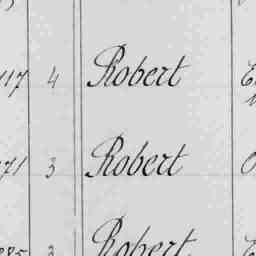 117 4 Robert
71 3 Robert
3 Robert